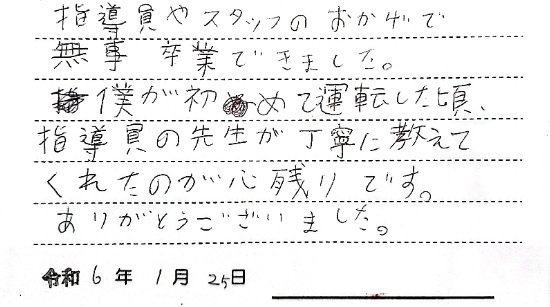 指導員やスタッフのおかげで
無事 卒業できました。
僕が初めて運転した頃、
指導員の先生が丁寧に教えて
くれたのが心残りです。
ありがとうございました。
令和 6 年 1 月 25 日